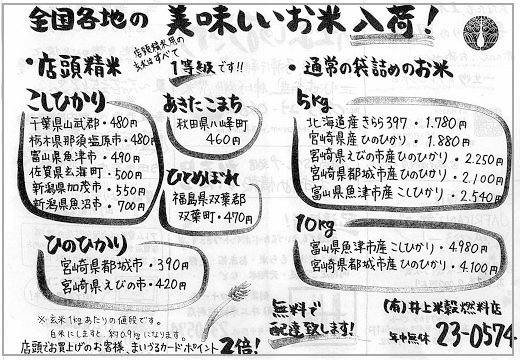 全国各地の 美味しいお米 入荷！
・店頭精米
店頭精米用の
玄米はすべて
1等級です!!
こしひかり
千葉県山武郡・480円
栃木県那須塩原市・480円
富山県魚津市・490円
佐賀県玄海町・500円
新潟県加茂市・550円
新潟県魚沼市・700円
あきたこまち
秋田県八峰町
460円
ひとめぼれ
福島県双葉郡
双葉町・470円
ひのひかり
宮崎県都城市・390円
宮崎県えびの市・420円
※玄米1kgあたりの値段です。
白米にしますと約0.9kgになります。
店頭でお買上げのお客様、まいづるカードポイント2倍！
・通常の袋詰めのお米
5kg
北海道産きらら397・1.780円
宮崎県産ひのひかり・1.880円
宮崎県えびの市産ひのひかり・2.250円
宮崎県都城市産ひのひかり・2.100円
富山県魚津市産こしひかり・2.540円
10kg
富山県魚津市産こしひかり・4.980円
宮崎県都城市産ひのひかり・4.100円
無料で
配達致します！
(有)井上米穀燃料店
年中無休 23-0574